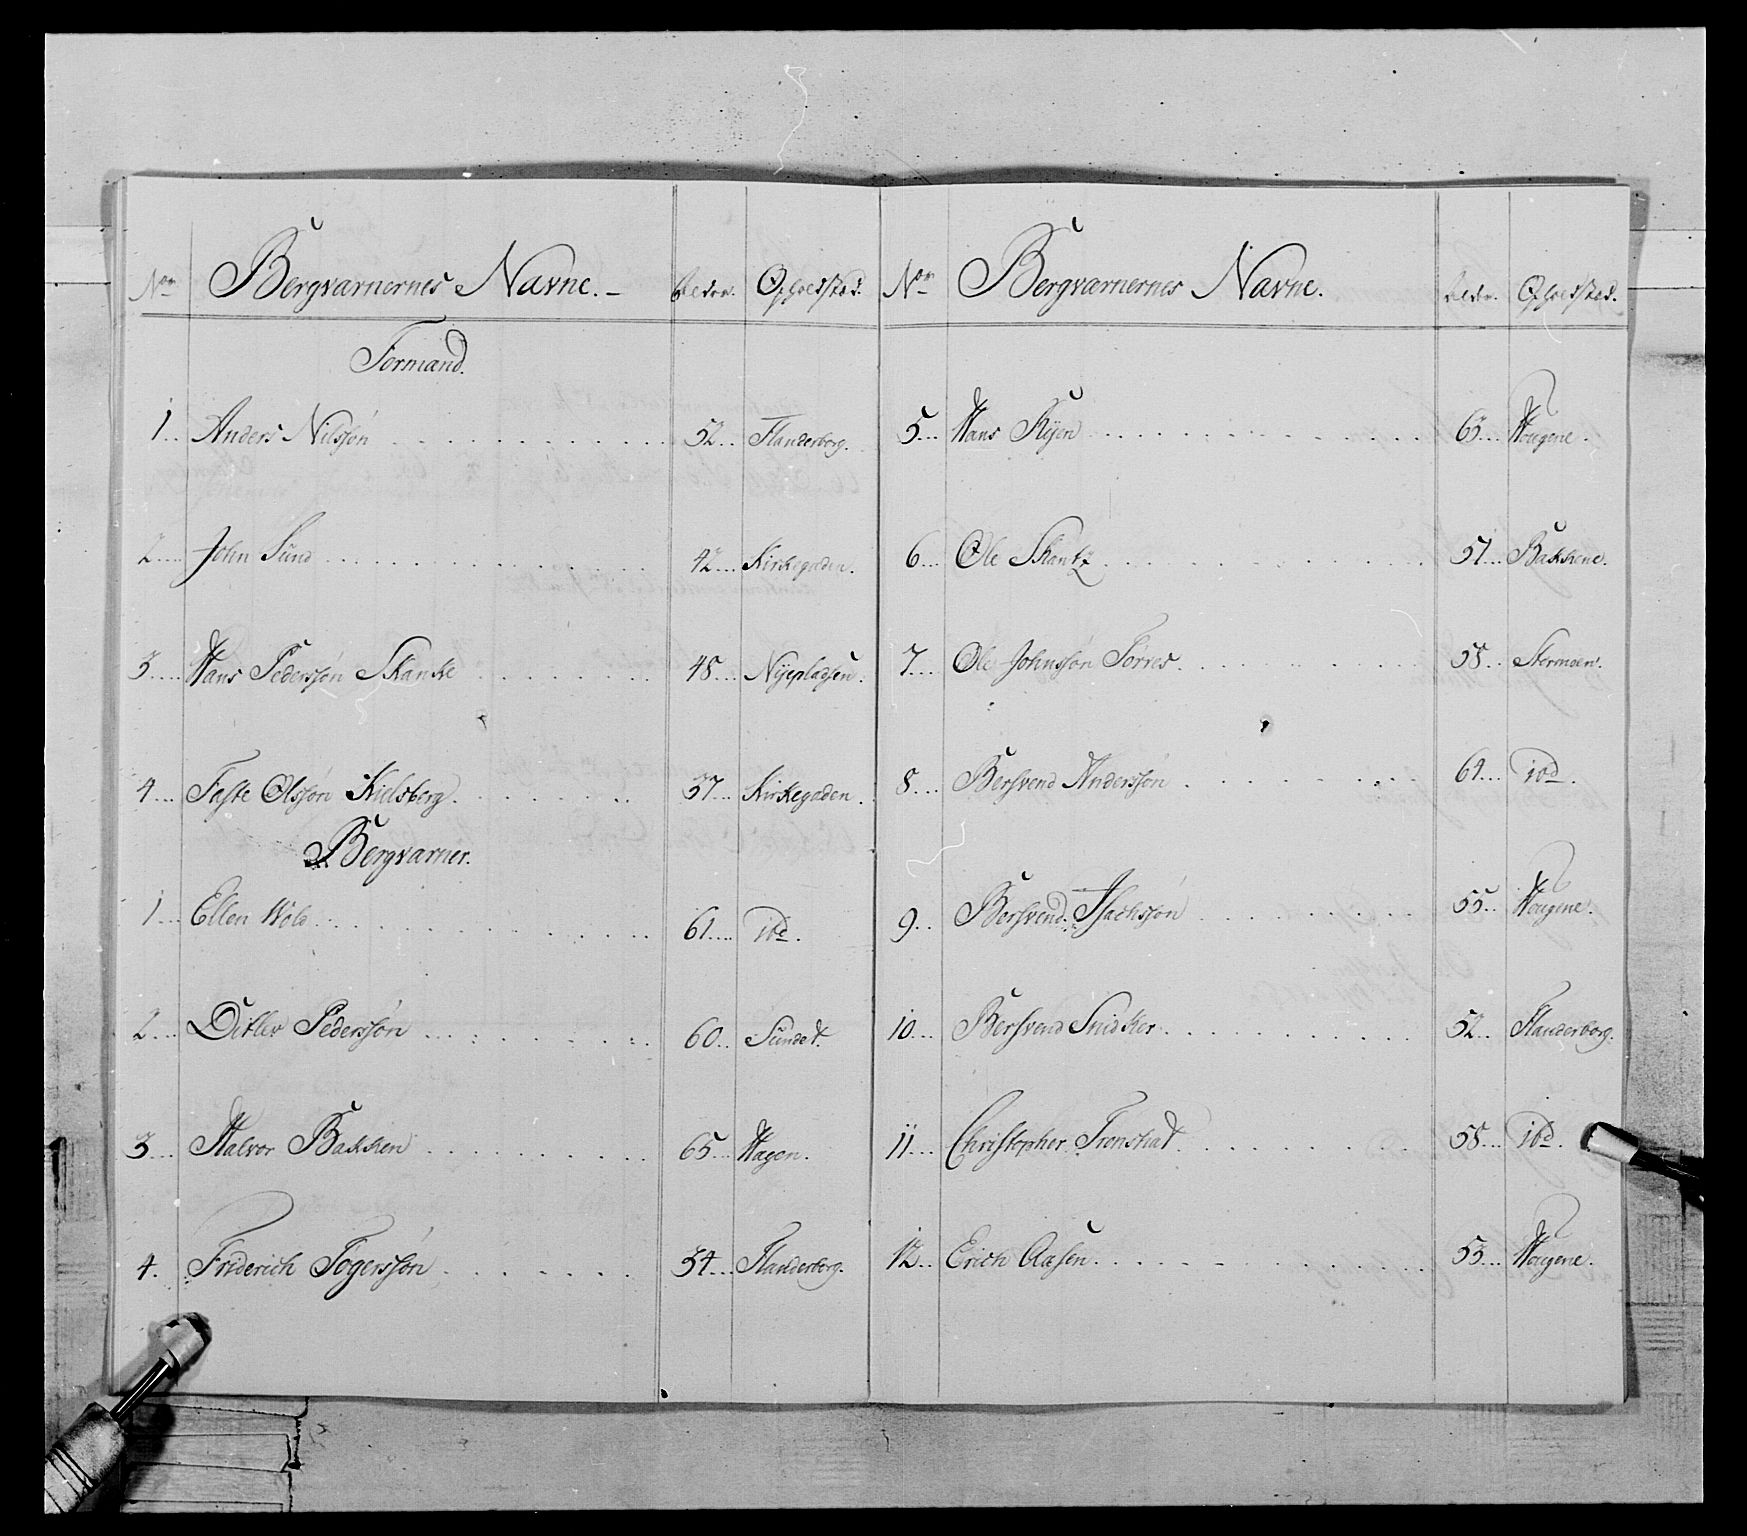 Nor Bergværnernes Navne. Alder. Opholdsted.
Formand.
1. Anders Nilssøn 52 Flanderborg.
2. John Sund 42 Kirkegaden.
3. Hans Pederssøn Skanke 48 Nyepladsen.
4. Faste Olssøn Kielsberg. 37 Kirkegaden.
Bergværner.
1. Ellen Wold 61 ibd.
2. Ditlev Pederssøn 60 Sundet.
3. Halvor Bakken 65 Hagen.
4. Friderich Tøgerssøn 34 Flanderborg.
Nor Bergværnernes Navne. Alder. Opholdsted.
5. Hans Ryen 63 Hougene.
6. Ole Skantz 51 Bakkene.
7. Ole Johnssøn Tørres. 58 Stormoen.
8. Bersvend Anderssøn 64 ibd.
9. Bersvend Isachssøn 55 Hougene.
10. Bersvend Snidker. 52 Flanderborg.
11. Christopher Tronshat 58 ibd.
12. Erich Aasen. 53 Hougene.